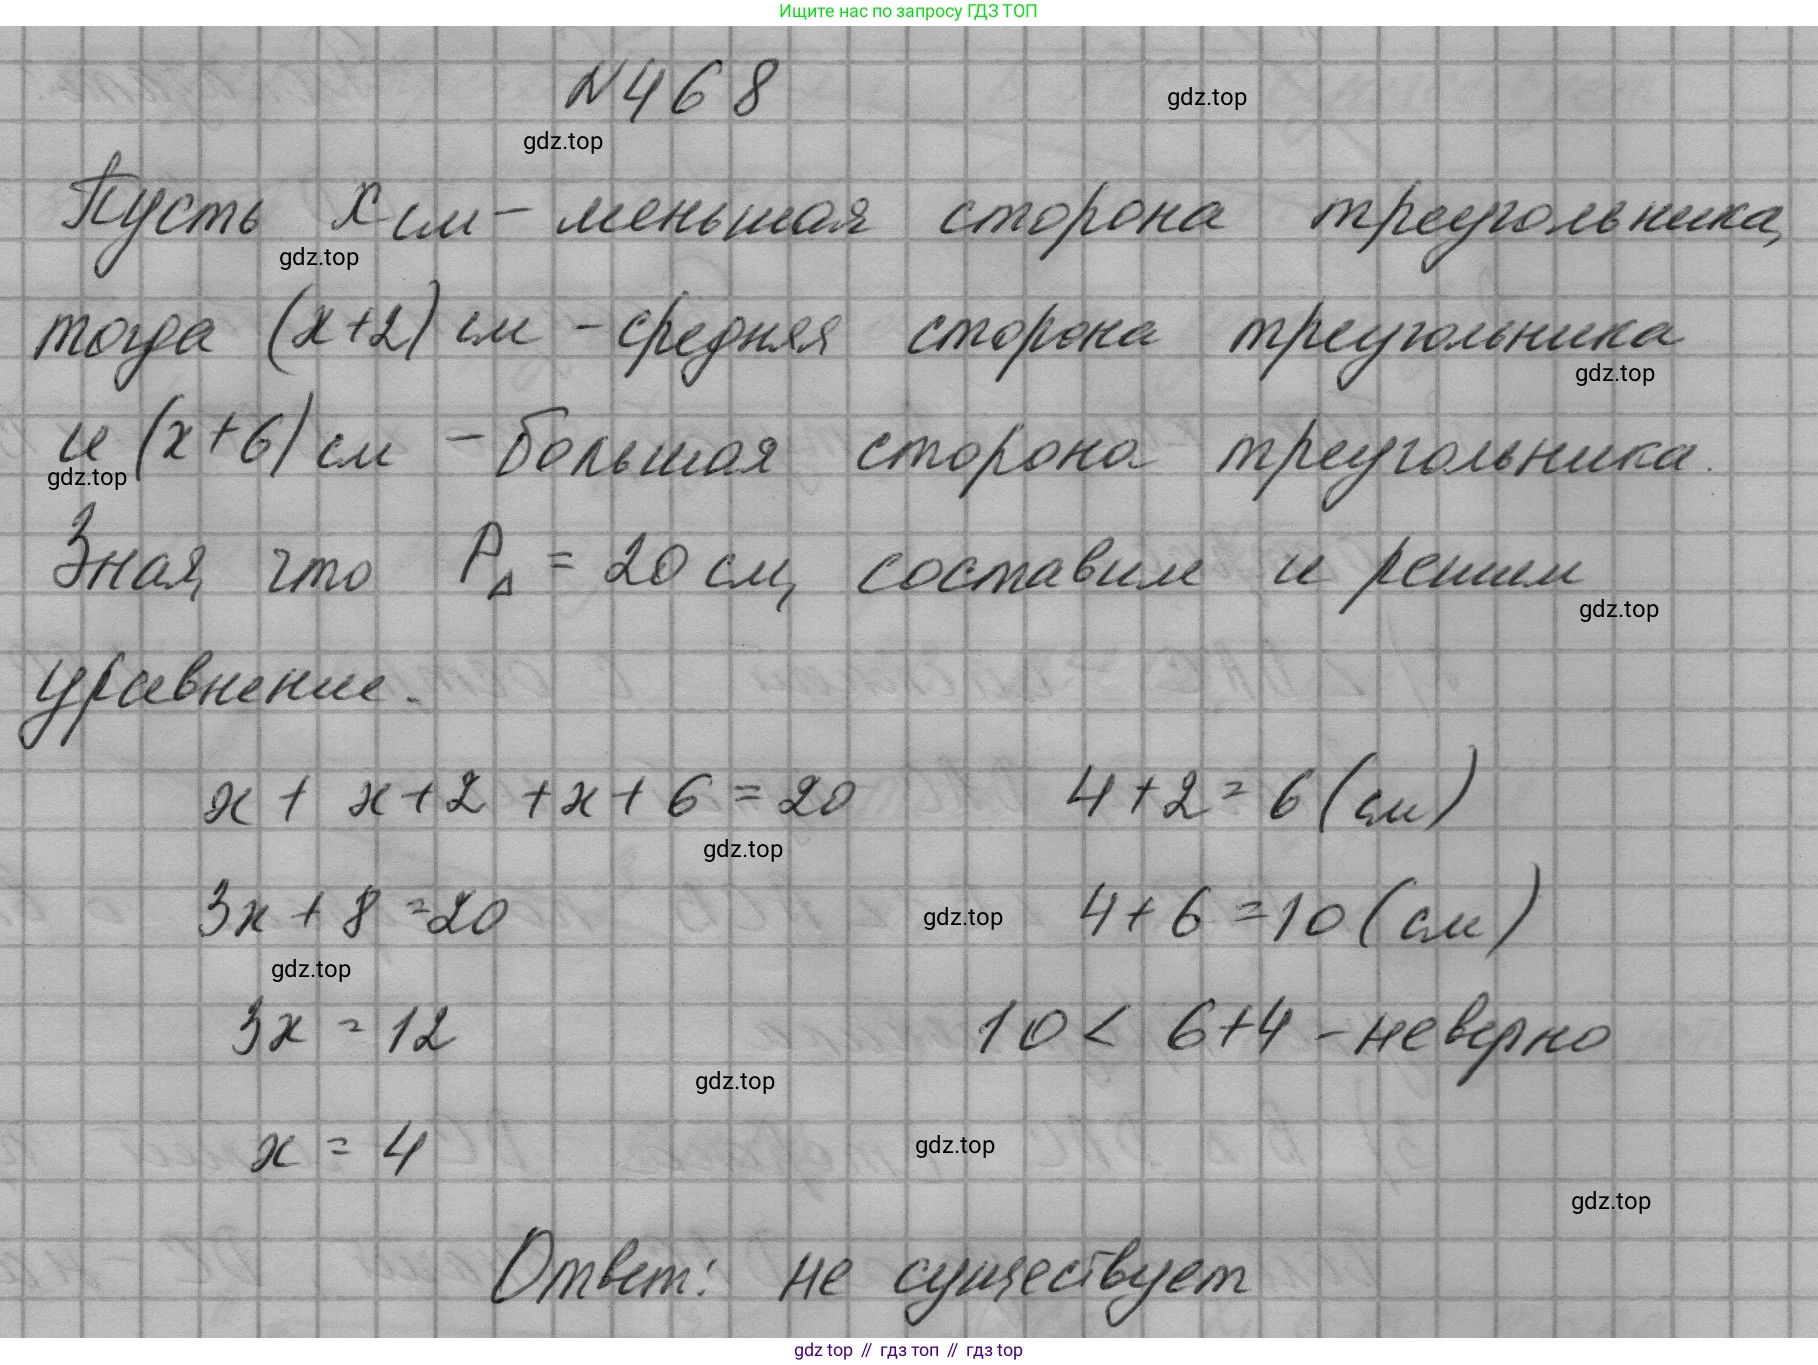 Ищите нас по запросу ГДЗ ТОП
N468
gdz.top
gdz.top
Пусть x см – меньшая сторона треугольника,
gdz.top
тогда (x+2) см – средняя сторона треугольника
gdz.top
и (x+6) см – большая сторона треугольника.
gdz.top
Зная, что P△ = 20 см, составим и решим
gdz.top
уравнение.
x + x+2 +x+6 = 20
4+2 = 6 (см)
gdz.top
3x + 8 = 20
gdz.top
4+6 = 10 (см)
gdz.top
3x = 12
10 < 6+4 – неверно
gdz.top
x = 4
gdz.top
gdz.top
Ответ: не существует
gdz top // гдз топ // гдз top